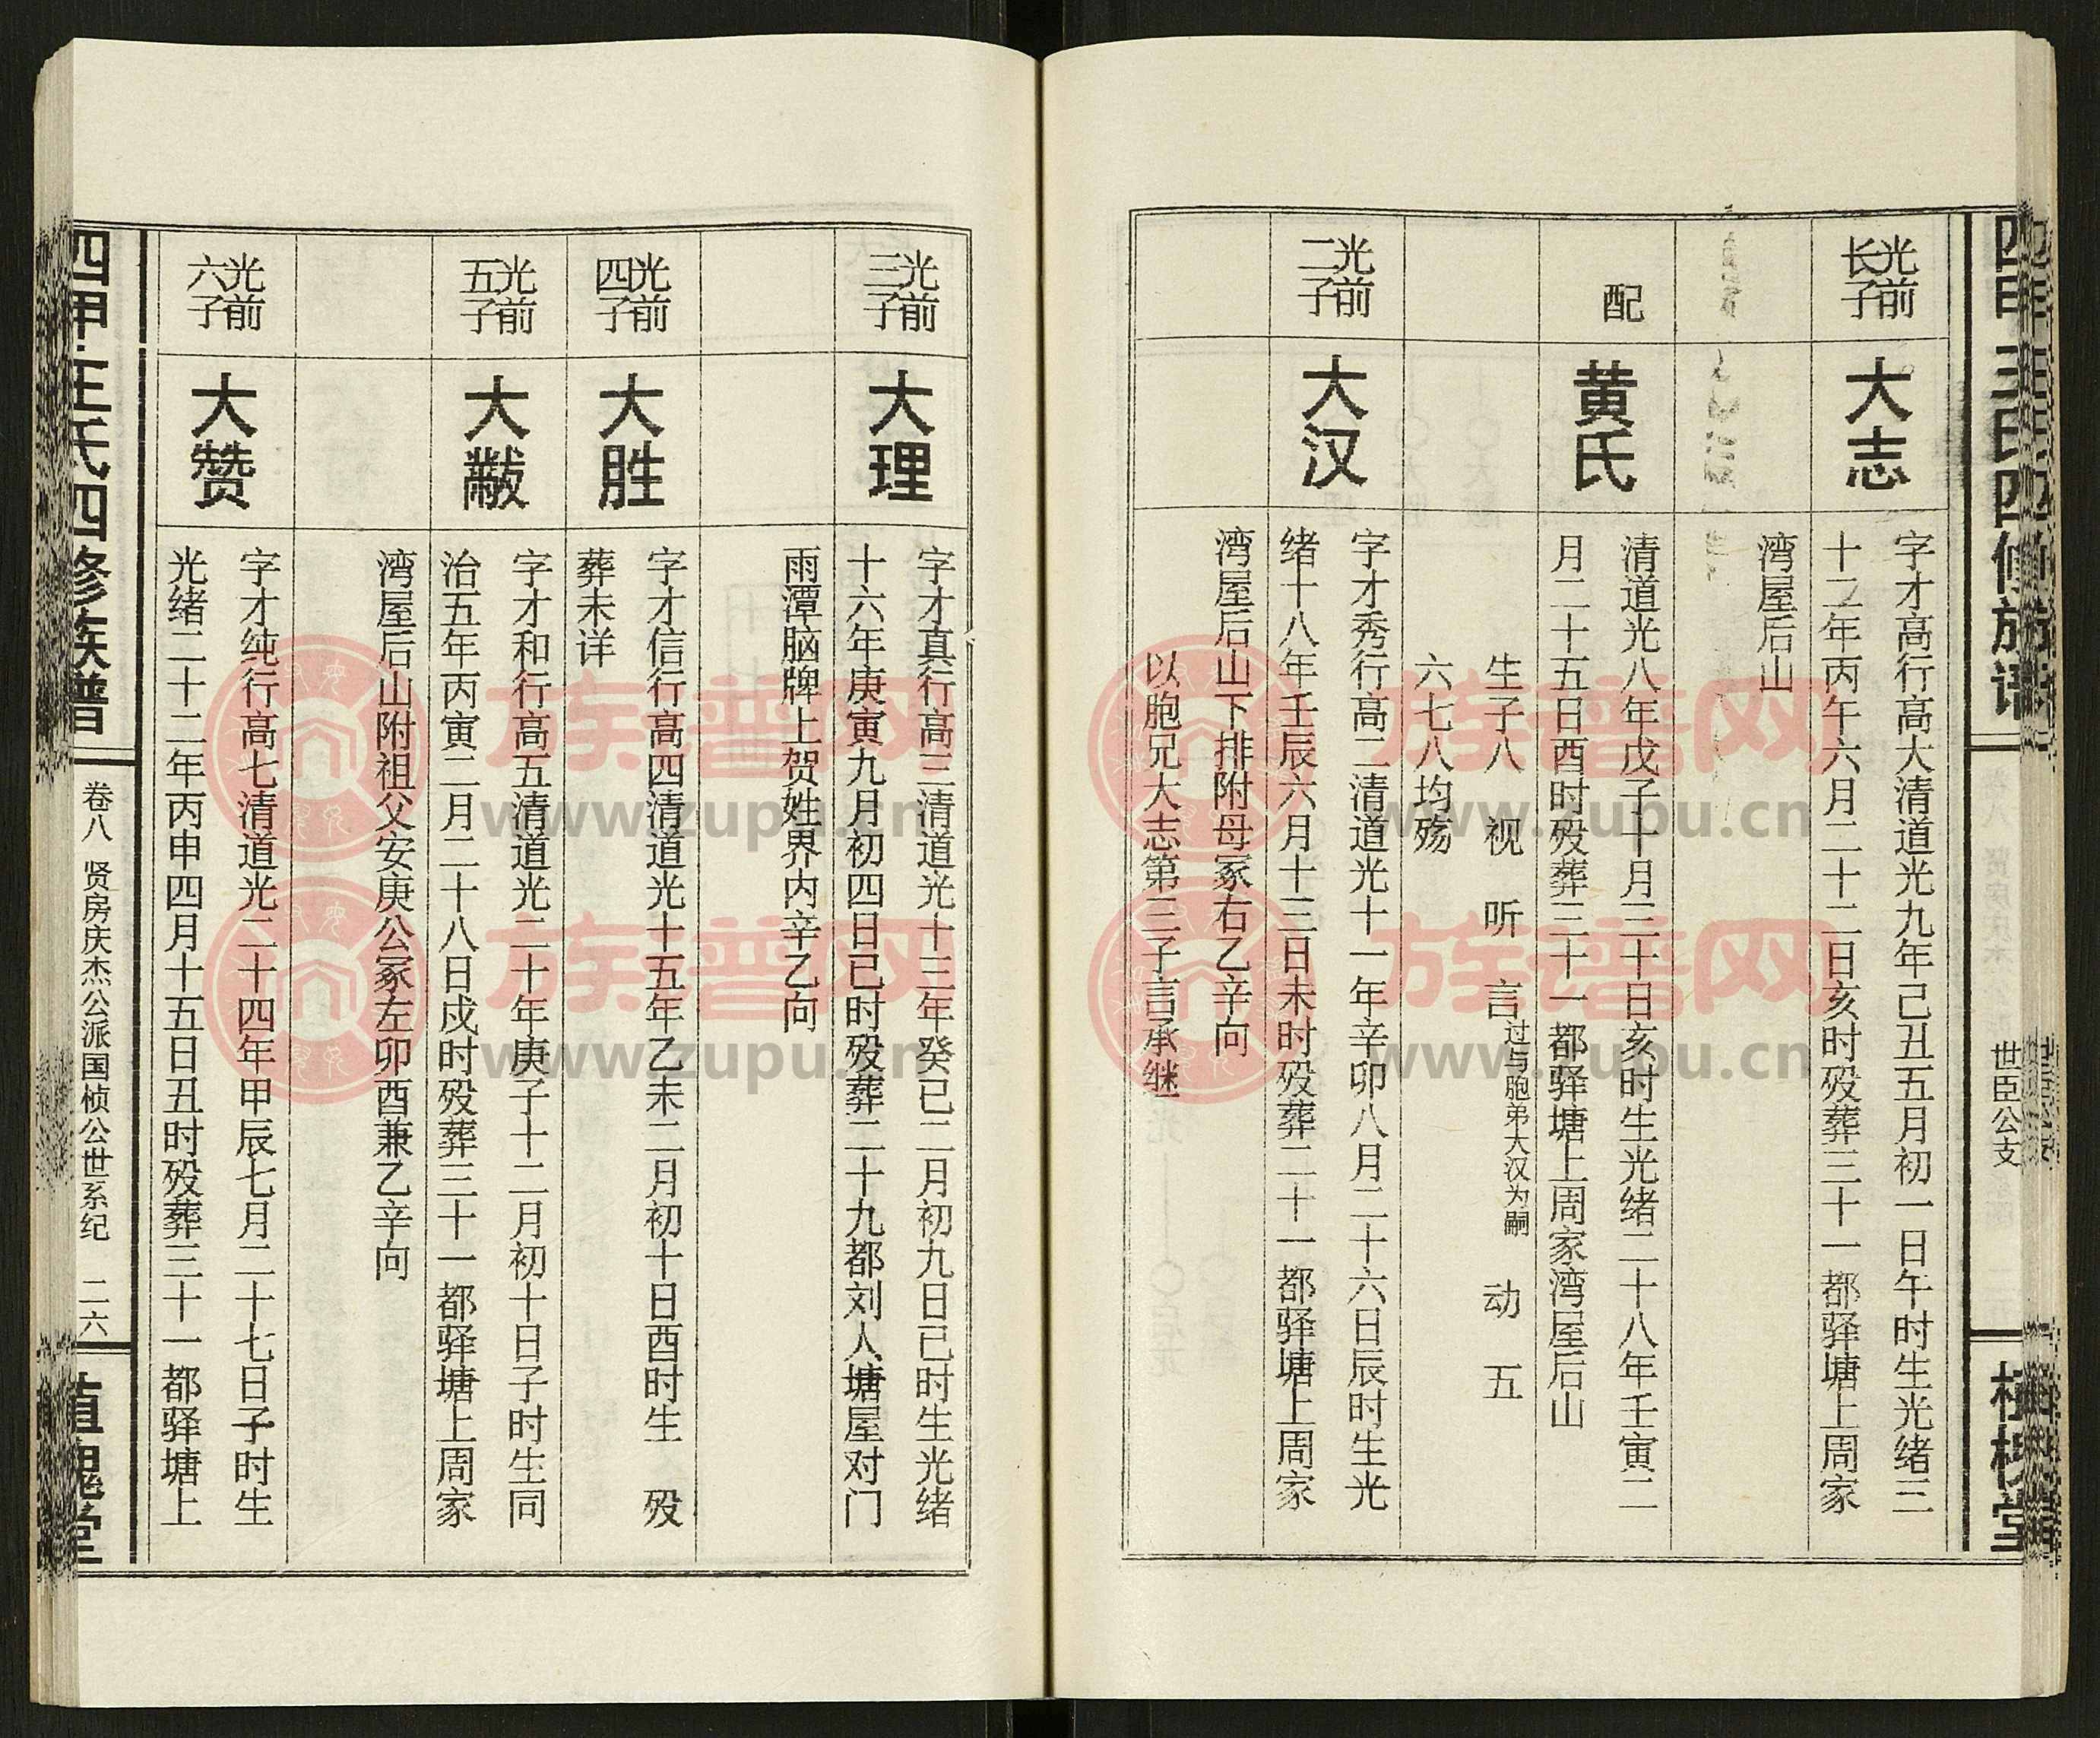 光前
长子
大志
字才高行高大清道光九年己丑五月初一日午时生光绪三
十二年丙午六月二十二日亥时殁葬三十一都驿塘上周家
湾屋后山
配
黄氏
清道光八年戊子十月三十日亥时生光绪二十八年壬寅二
月二十五日酉时殁葬三十一都驿塘上周家湾屋后山
生子八 视 听 言过与胞弟大汉为嗣 动 五
六七八均殇
光前
二子
大汉
字才秀行高二清道光十一年辛卯八月二十六日辰时生光
绪十八年壬辰六月十三日未时殁葬二十一都驿塘上周家
湾屋后山下排附母冢右乙辛向
以胞兄大志第三子言承继
世臣公支
光前
三子
大理
字才真行高三清道光十三年癸巳二月初九日已时生光绪
十六年庚寅九月初四日已时殁葬二十九都刘人塘屋对门
雨潭脑牌上贺姓界内辛乙向
光前
四子
大胜
字才信行高四清道光十五年乙未二月初十日酉时生 殁
葬未详
光前
五子
大黻
字才和行高五清道光二十年庚子十二月初十日子时生同
治五年丙寅二月二十八日戍时殁葬三十一都驿塘上周家
湾屋后山附祖父安庚公冢左卯酉兼乙辛向
光前
六子
大赞
字才纯行高七清道光二十四年甲辰七月二十七日子时生
光绪二十二年丙申四月十五日丑时殁葬三十一都驿塘上
四甲王氏四修族谱
卷八 贤房庆杰公派国桢公世系纪 二六
植槐堂
族谱网
www.zupu.cn
族谱网
www.zupu.cn
族谱网
www.zupu.cn
族谱网
www.zupu.cn